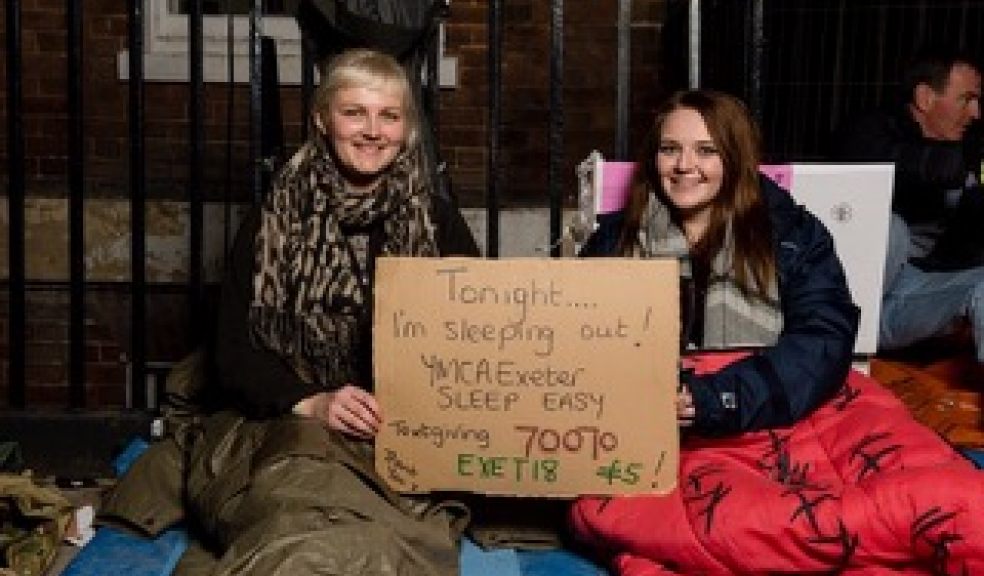 Tonight....
I'm sleeping out!
YMCA Exeter
SLEEP EASY
Textgiving 70070
EXET18 £5!